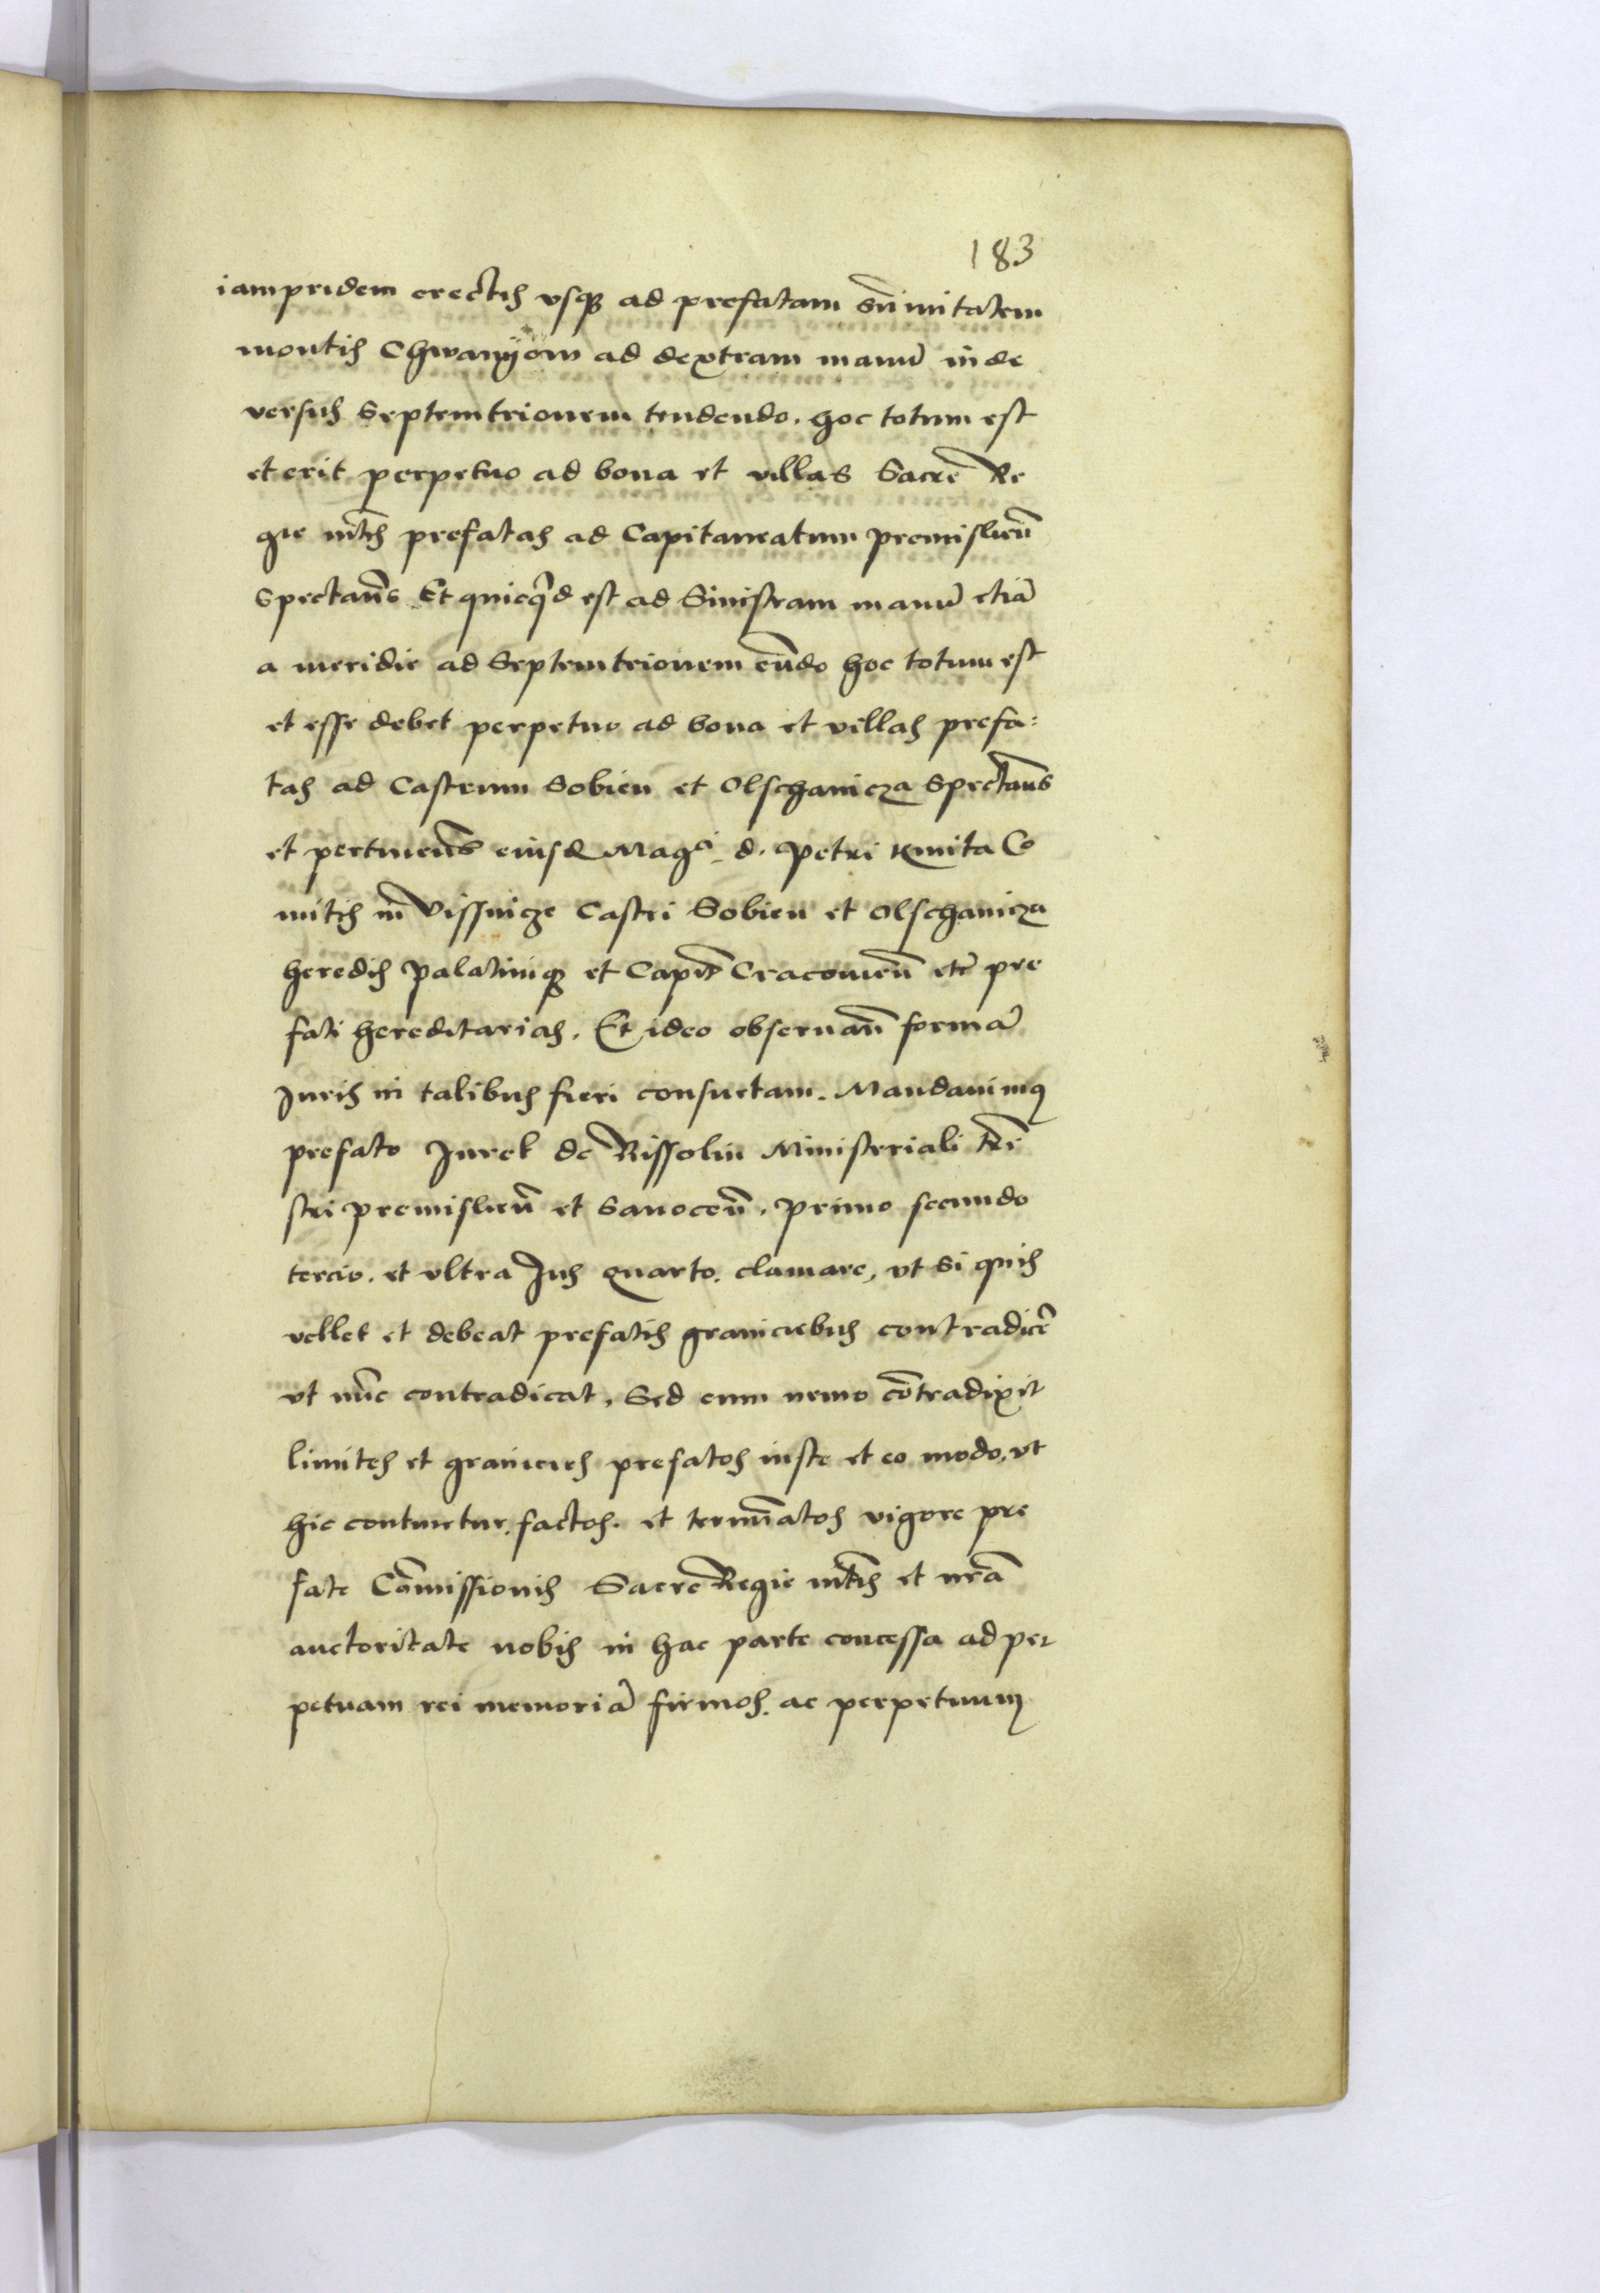 183
iampridem erectis vsq3 ad prefatam sūmitatem
montis Chwanÿow ad dextram manū inde
versus Septemtrionem tendendo. hoc totum est
et erit perpetuo ad bona et villas Sacrē Re
gie mt̄is prefatas ad Capitaneatum premislieñ
Spectañs Et quicq̄d est ad Sinistram manū etiā
a meridie ad Septemtrionem eūdo hoc totum est
et esse debet perpetuo ad bona et villas prefa:
tas ad Castrum Sobien et Olschanicza Spectañs
et pertineñs eiusd Magci d. Petri Kmita Co
mitis in Vissnicze Castri Sobien et Olschanicza
heredis Palatiniq3 et Capit̄ Cracouieñ etc̄ pre
fati hereditarias. Et ideo obseruañ formā
Juris in talibus fieri consuetam. Mandauimq
prefato Jurek de Rissolin Ministeriali ter̄
stri premislieñ et Sanoceñ. primo secundo
tercio. et vltra Jus quarto. clamare, vt si quis
vellet et debeat prefatis graniciebus contradicē
vt nūc contradicat, Sed cum nemo cōtradixit
limites et granicies prefatos iuste et eo modo, vt
hic continetur, factos. et termīatos vigore pre
fate Cōmissionis Sacre Regie mt̄is et nr̄a
auctoritate nobis in hac parte concessa ad per
petuam rei memoriā firmos. ac perpetuum